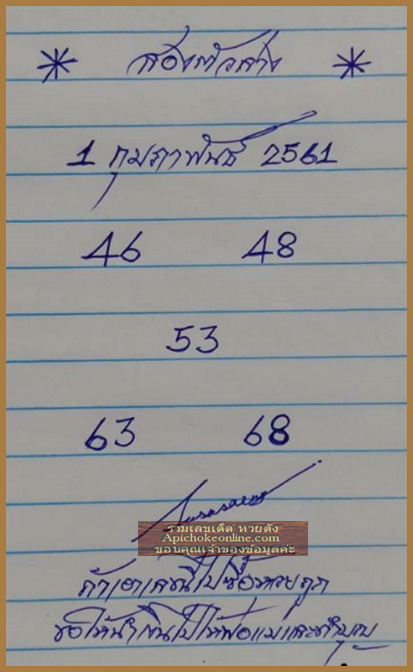 * สองตัวล่าง *
1 กุมภาพันธ์ 2561
46 48
53
63 68
รวมเลขเด็ด หวยดัง
Apichokeonline.com
ขอบคุณเจ้าของข้อมูลค่ะ
ถ้าเอาเลขนี้ไปซื้อหวยถูก
ขอให้นำเงินไปให้พ่อแม่และทำบุญ